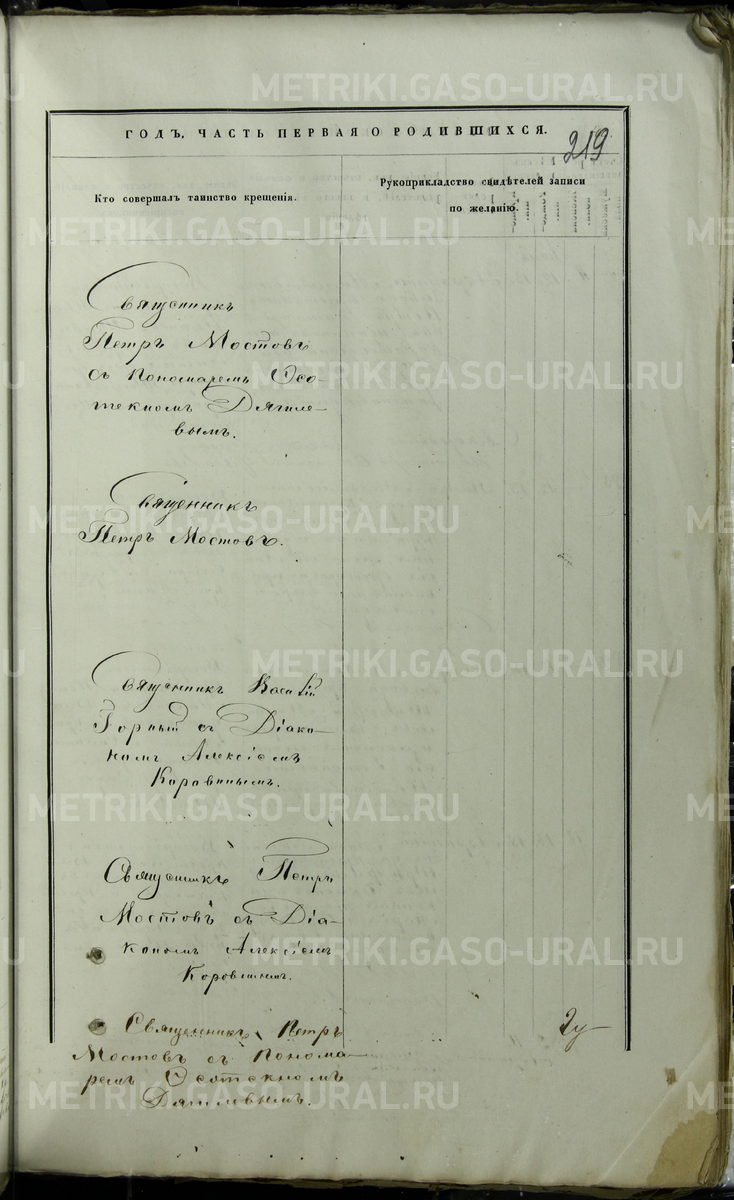 METRIKI.GASO-URAL.RU
ГОДЪ, ЧАСТЬ ПЕРВАЯ О РОДИВШИХСЯ.
219
Кто совершалъ таинство крещенія.
Рукоприкладство свидѣтелей записи
по желанію.
Священникъ
Петръ Мостовъ
съ Пономаремъ Ѳео-
Дягиле-
вымъ.
Священникъ
Петръ Мостовъ.
Священникъ Василій
Горный съ Діако-
номъ Алексіемъ
Коровинымъ.
Священникъ Петръ
Мостовъ съ Діа-
кономъ Алексіемъ
Коровинымъ.
Священникъ Петръ
Мостовъ съ Понома-
ремъ
Дягилевымъ.